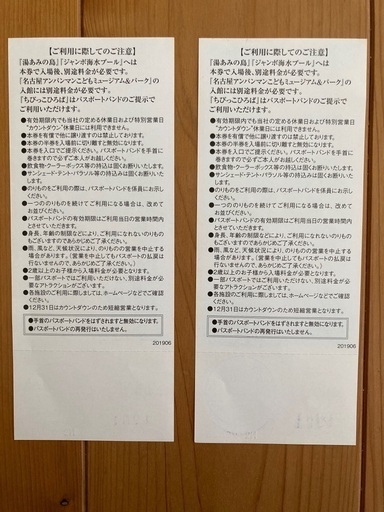 【ご利用に際してのご注意】
『湯あみの島』『ジャンボ海水プール』へは
本券で入場後、別途料金が必要です。
『名古屋アンパンマンこどもミュージアム&パーク』の
入館には別途料金が必要です。
『ちびっこひろば』はパスポートバンドのご提示で
ご利用いただけます。
●有効期限内でも当社の定める休業日および特別営業日
"カウントダウン"休業日にはご利用できません。
●本券を有償で他に譲り渡すのは禁止しております。
●本券の半券を入場前に切り離すと無効になります。
●本券を入口でご提示ください。パスポートバンドを手首に
巻きますので必ずご本人がお越しください。
●飲食物・クーラーボックス等の持込は固くお断りいたします。
●サンシェード・テント・パラソル等の持込みは固くお断りいた
します。
●のりものをご利用の際は、パスポートバンドを係員にお示し
ください。
●一つののりものを続けてご利用になる場合は、改めて
お並びください。
●パスポートバンドの有効期限はご利用当日の営業時間内
とさせていただきます。
●身長、年齢の制限などにより、ご利用になれないのりもの
もございますのであらかじめご了承ください。
●雨、風など、天候状況により、のりもの、営業を中止する
場合があります。(営業を中止してもパスポートの払戻は
行ないませんので、あらかじめご了承ください。)
●2歳以上のお子様から入場料金が必要となります。
●一部パスポートではご利用いただけない、別途料金が必要
なアトラクションがございます。
●各施設のご利用に際しましては、ホームページなどでご確認
ください。
●12月31日はカウントダウンのため短縮営業となります。
●手首のパスポートバンドをはずされますと無効になります。
●パスポートバンドの再発行はいたしません。
201906
【ご利用に際してのご注意】
『湯あみの島』『ジャンボ海水プール』へは
本券で入場後、別途料金が必要です。
『名古屋アンパンマンこどもミュージアム&パーク』の
入館には別途料金が必要です。
『ちびっこひろば』はパスポートバンドのご提示で
ご利用いただけます。
●有効期限内でも当社の定める休業日および特別営業日
"カウントダウン"休業日にはご利用できません。
●本券を有償で他に譲り渡すのは禁止しております。
●本券の半券を入場前に切り離すと無効になります。
●本券を入口でご提示ください。パスポートバンドを手首に
巻きますので必ずご本人がお越しください。
●飲食物・クーラーボックス等の持込は固くお断りいたします。
●サンシェード・テント・パラソル等の持込みは固くお断りいた
します。
●のりものをご利用の際は、パスポートバンドを係員にお示し
ください。
●一つののりものを続けてご利用になる場合は、改めて
お並びください。
●パスポートバンドの有効期限はご利用当日の営業時間内
とさせていただきます。
●身長、年齢の制限などにより、ご利用になれないのりもの
もございますのであらかじめご了承ください。
●雨、風など、天候状況により、のりもの、営業を中止する
場合があります。(営業を中止してもパスポートの払戻は
行ないませんので、あらかじめご了承ください。)
●2歳以上のお子様から入場料金が必要となります。
●一部パスポートではご利用いただけない、別途料金が必要
なアトラクションがございます。
●各施設のご利用に際しましては、ホームページなどでご確認
ください。
●12月31日はカウントダウンのため短縮営業となります。
●手首のパスポートバンドをはずされますと無効になります。
●パスポートバンドの再発行はいたしません。
201906